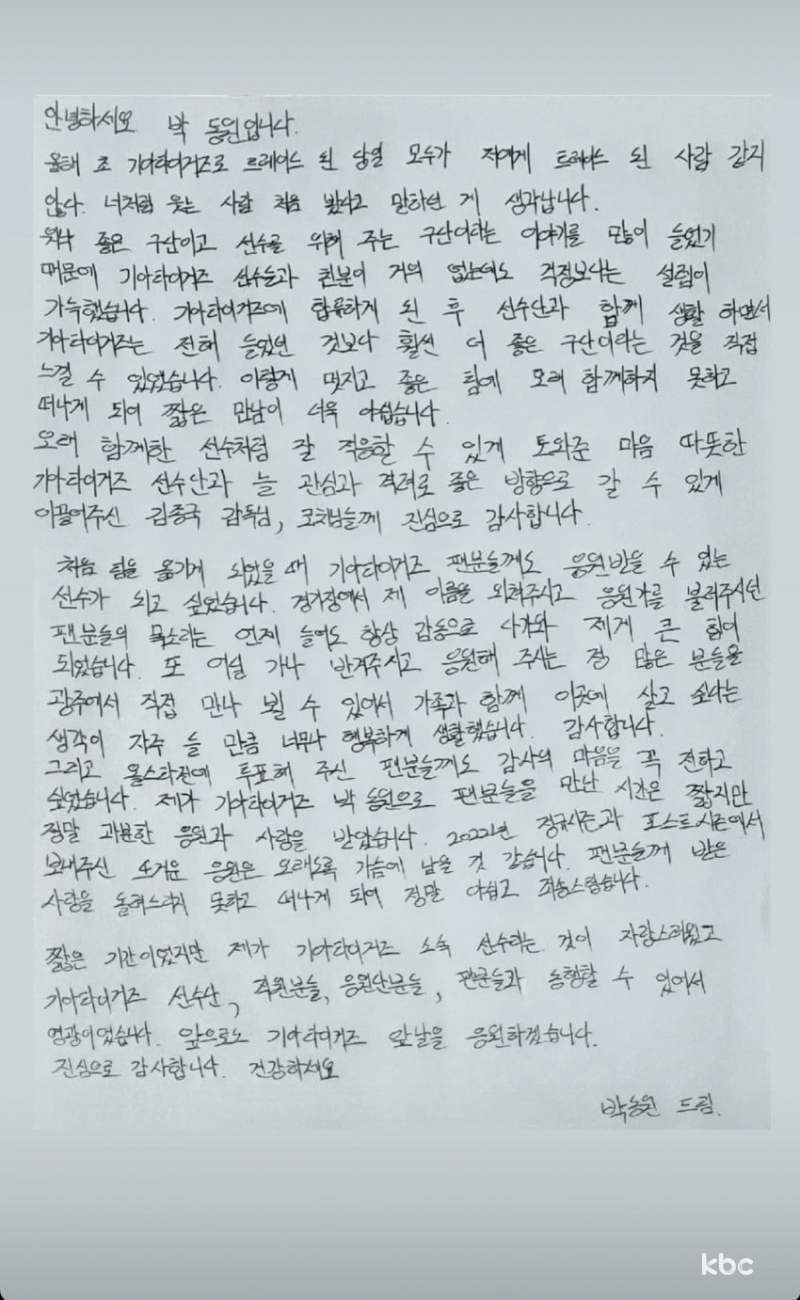 안녕하세요 박 동원입니다.
올해 초 기아타이거즈로 트레이드 된 당일 모두가 저에게 트레이드 된 사람 같지
않다. 너처럼 웃는 사람 처음 봤다고 말하던 게 생각납니다.
워낙 좋은 구단이고 선수를 위해 주는 구단이라는 이야기를 많이 들었기
때문에 기아타이거즈 선수들과 친분이 거의 없는데도 걱정보다는 설렘이
가득했습니다. 기아타이거즈에 합류하게 된 후 선수단과 함께 생활 하면서
기아타이거즈는 전해 들었던 것보다 훨씬 더 좋은 구단이라는 것을 직접
느낄 수 있었습니다. 이렇게 멋지고 좋은 팀에 오래 함께하지 못하고
떠나게 되어 짧은 만남이 더욱 아쉽습니다.
오래 함께한 선수처럼 잘 적응할 수 있게 도와준 마음 따뜻한
기아타이거즈 선수단과 늘 관심과 격려로 좋은 방향으로 갈 수 있게
이끌어주신 김종국 감독님, 코치님들께 진심으로 감사합니다.
처음 팀을 옮기게 되었을 때 기아타이거즈 팬분들께도 응원받을 수 있는
선수가 되고 싶었습니다. 경기장에서 제 이름을 외쳐주시고 응원가를 불러주시던
팬분들의 목소리는 언제 들어도 항상 감동으로 다가와 제게 큰 힘이
되었습니다. 또 어딜 가나 반겨주시고 응원해 주시는 정 많은 분들을
광주에서 직접 만나 뵐 수 있어서 가족과 함께 이곳에 살고 싶다는
생각이 자주 들 만큼 너무나 행복하게 생활했습니다. 감사합니다.
그리고 올스타전에 투표해 주신 팬분들께도 감사의 마음을 꼭 전하고
싶었습니다. 제가 기아타이거즈 박 동원으로 팬분들을 만난 시간은 짧지만
정말 과분한 응원과 사랑을 받았습니다. 2022년 정규시즌과 포스트시즌에서
보내주신 뜨거운 응원은 오래도록 가슴에 남을 것 같습니다. 팬분들께 받은
사랑을 돌려드리지 못하고 떠나게 되어 정말 아쉽고 죄송스럽습니다.
짧은 기간이었지만 제가 기아타이거즈 소속 선수라는 것이 자랑스러웠고
기아타이거즈 선수단, 직원분들, 응원단분들, 팬분들과 동행할 수 있어서
영광이었습니다. 앞으로도 기아타이거즈 앞날을 응원하겠습니다.
진심으로 감사합니다. 건강하세요
박동원 드림.
kbc